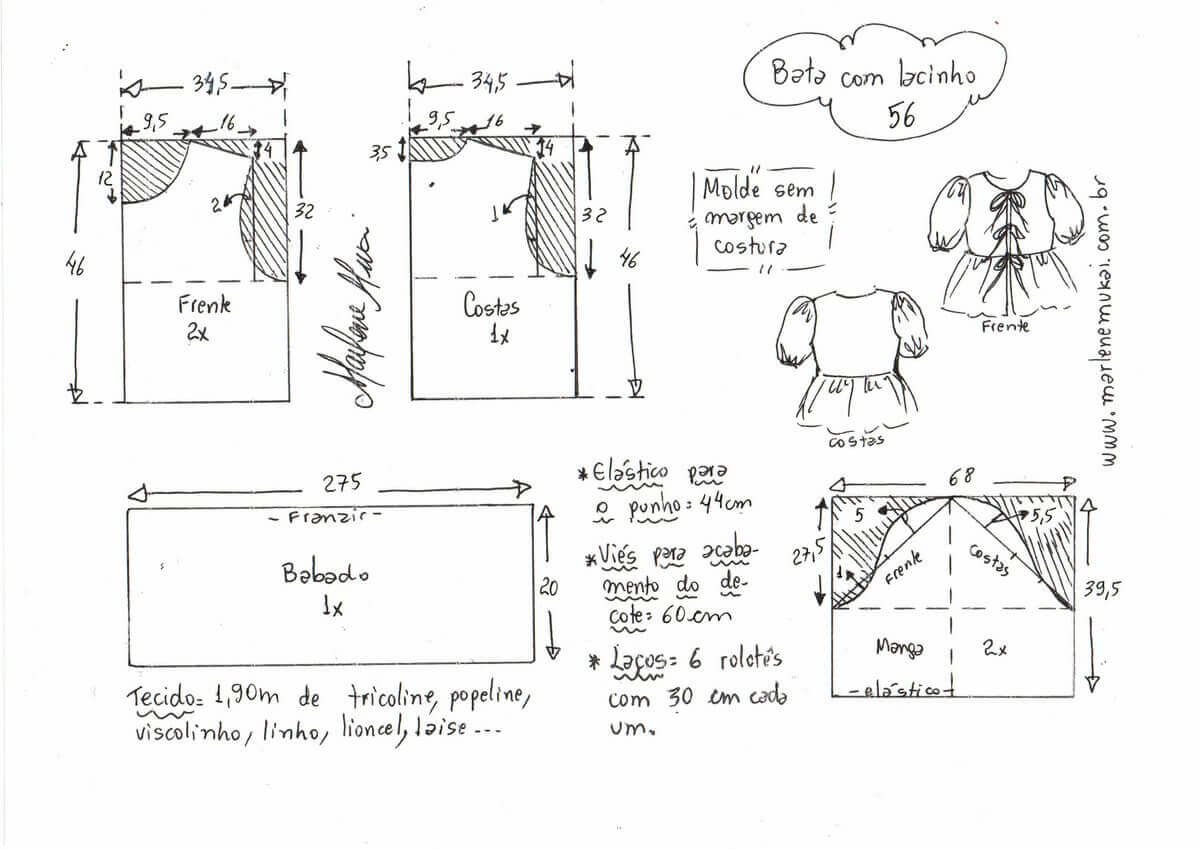 Bata com lacinho
56
34,5
9,5
16
4
12
2
32
46
Frente
2x
34,5
9,5
16
4
3,5
1
32
46
Costas
1x
Molde sem
margem de
costura
Frente
costas
www.marlenemukai.com.br
275
- Franzir -
Babado
1x
20
* Elástico para
o punho = 44cm
* Viés para acaba-
mento do de-
cote = 60cm
* Laços = 6 rolotês
com 30 cm cada
um.
68
5
5,5
27,5
1
Frente
Costas
39,5
Manga
2x
- elástico -
Tecido = 1,90m de tricoline, popeline,
viscolinho, linho, lioncel, laise ...